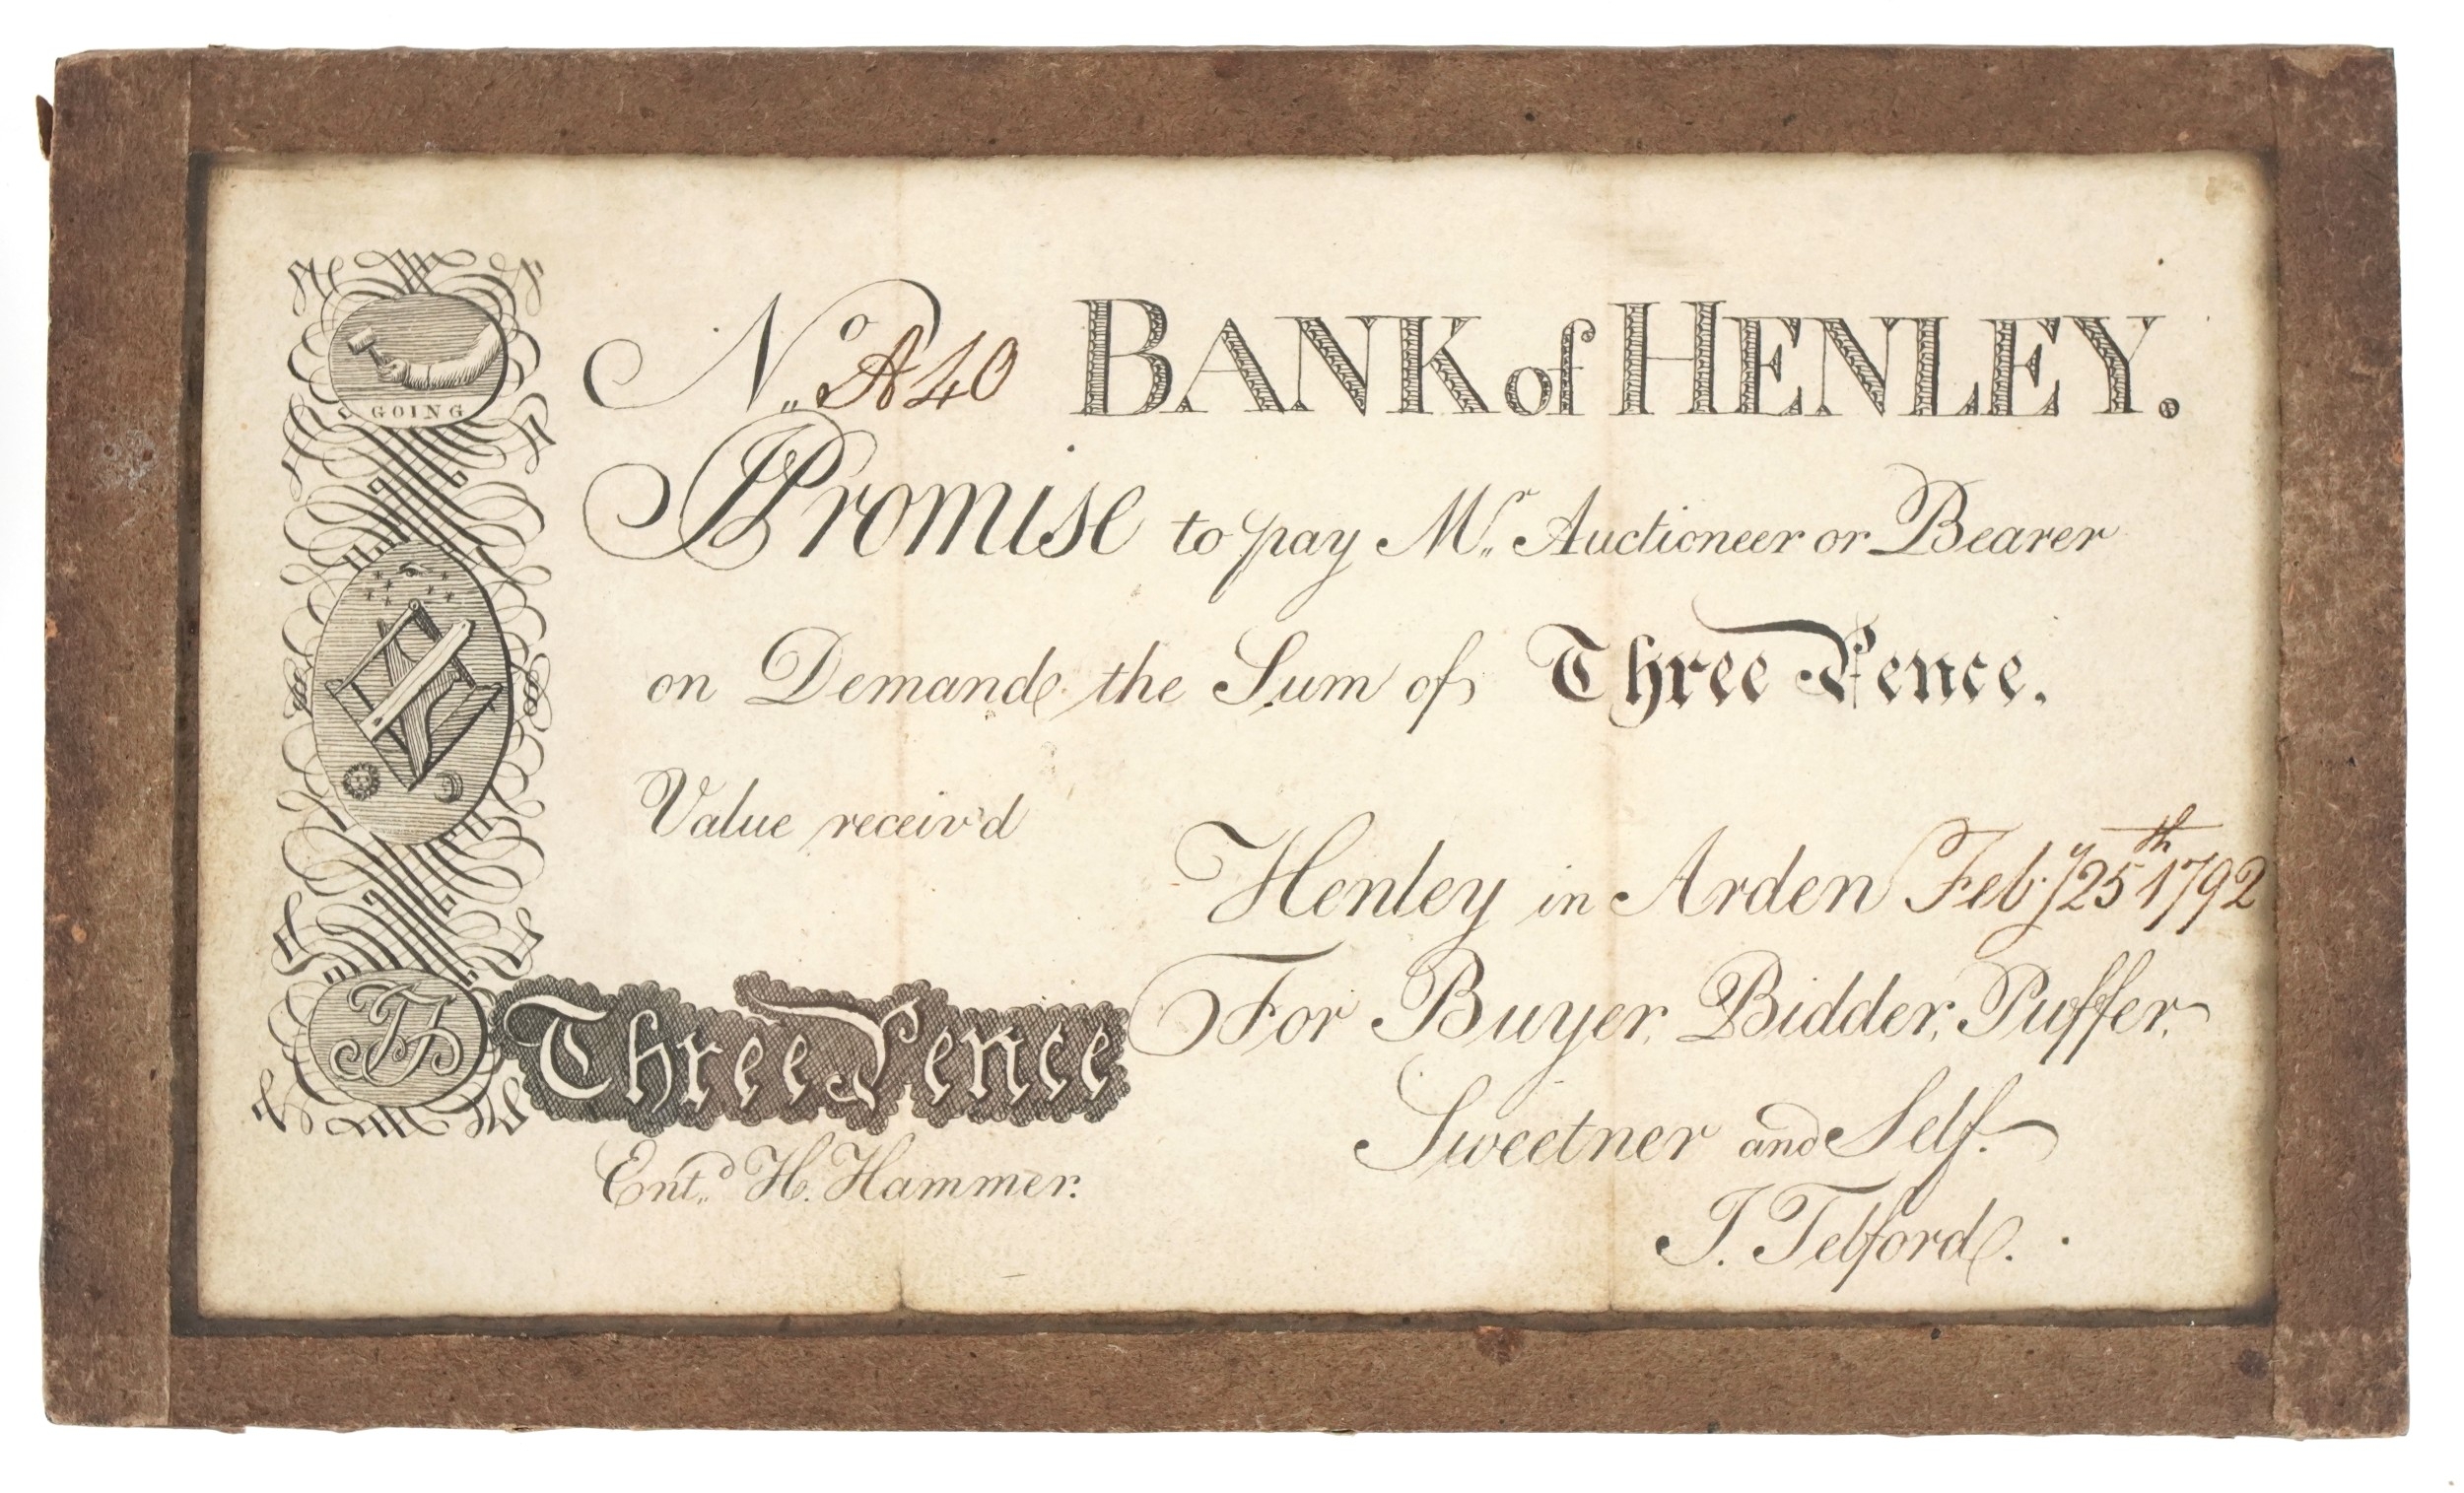 GOING
No. A40 BANK of HENLEY.
I Promise to pay Mr. Auctioneer or Bearer
on Demand the Sum of Three Pence.
Value receiv'd
Henley in Arden Feby 25th 1792
For Buyer, Bidder, Puffer,
Sweetner and Self.
J. Telford.
Three Pence
Entd. H. Hammer.